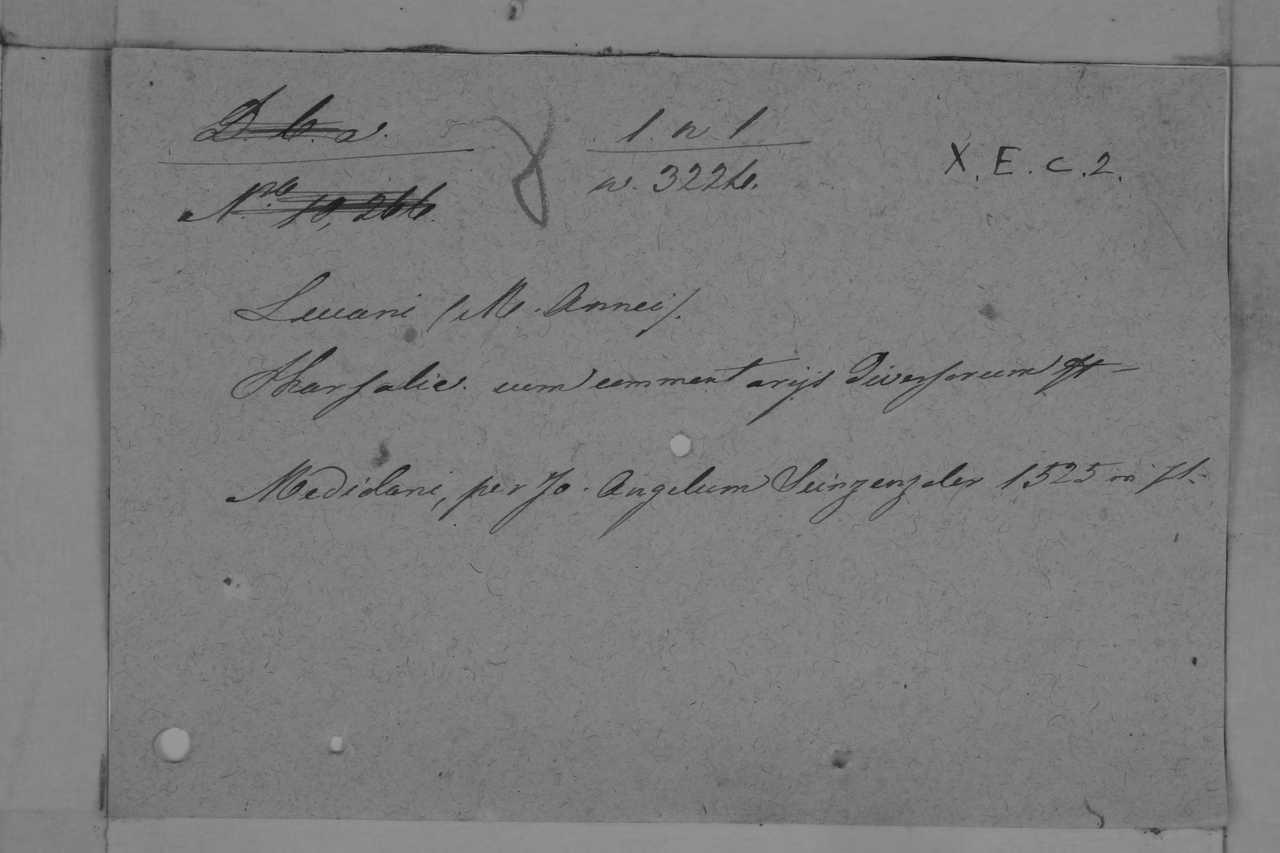 D. b. a.
1. n 1
X. E. c. 2.
N.ro 10,266.
n. 3226.
Lucani (M. Annei).
Pharsalie. cum commentarijs diversorum
Mediolani, per Jo. Angelum Scinzenzeler 1525 in fl.